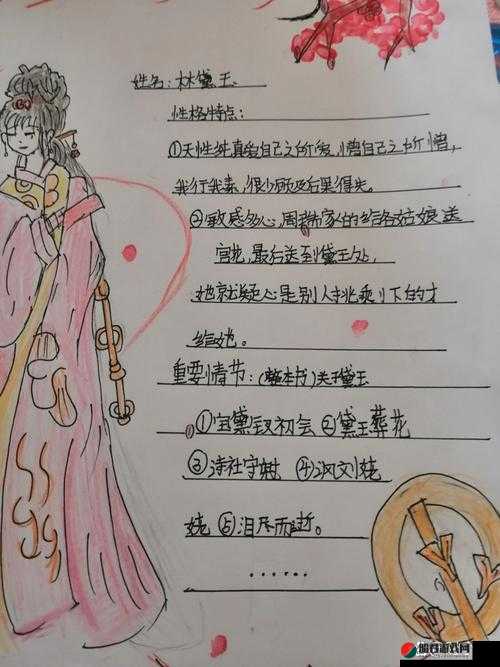 姓名:林黛玉
性格特点:
①天性纯真爱自己之所爱,憎自己之所憎,
我行我素,很少顾及后果得失。
②敏感多心,周瑞家的给各姑娘送
宫花,最后送到黛玉处,
她就疑心是别人挑乘刂下的才
给她。
重要情节:(整本书)关于黛玉
①宝黛钗初会 ②黛玉葬花
③诗社夺魁 ④讽刘姥
姥 ⑤泪尽而逝。
······